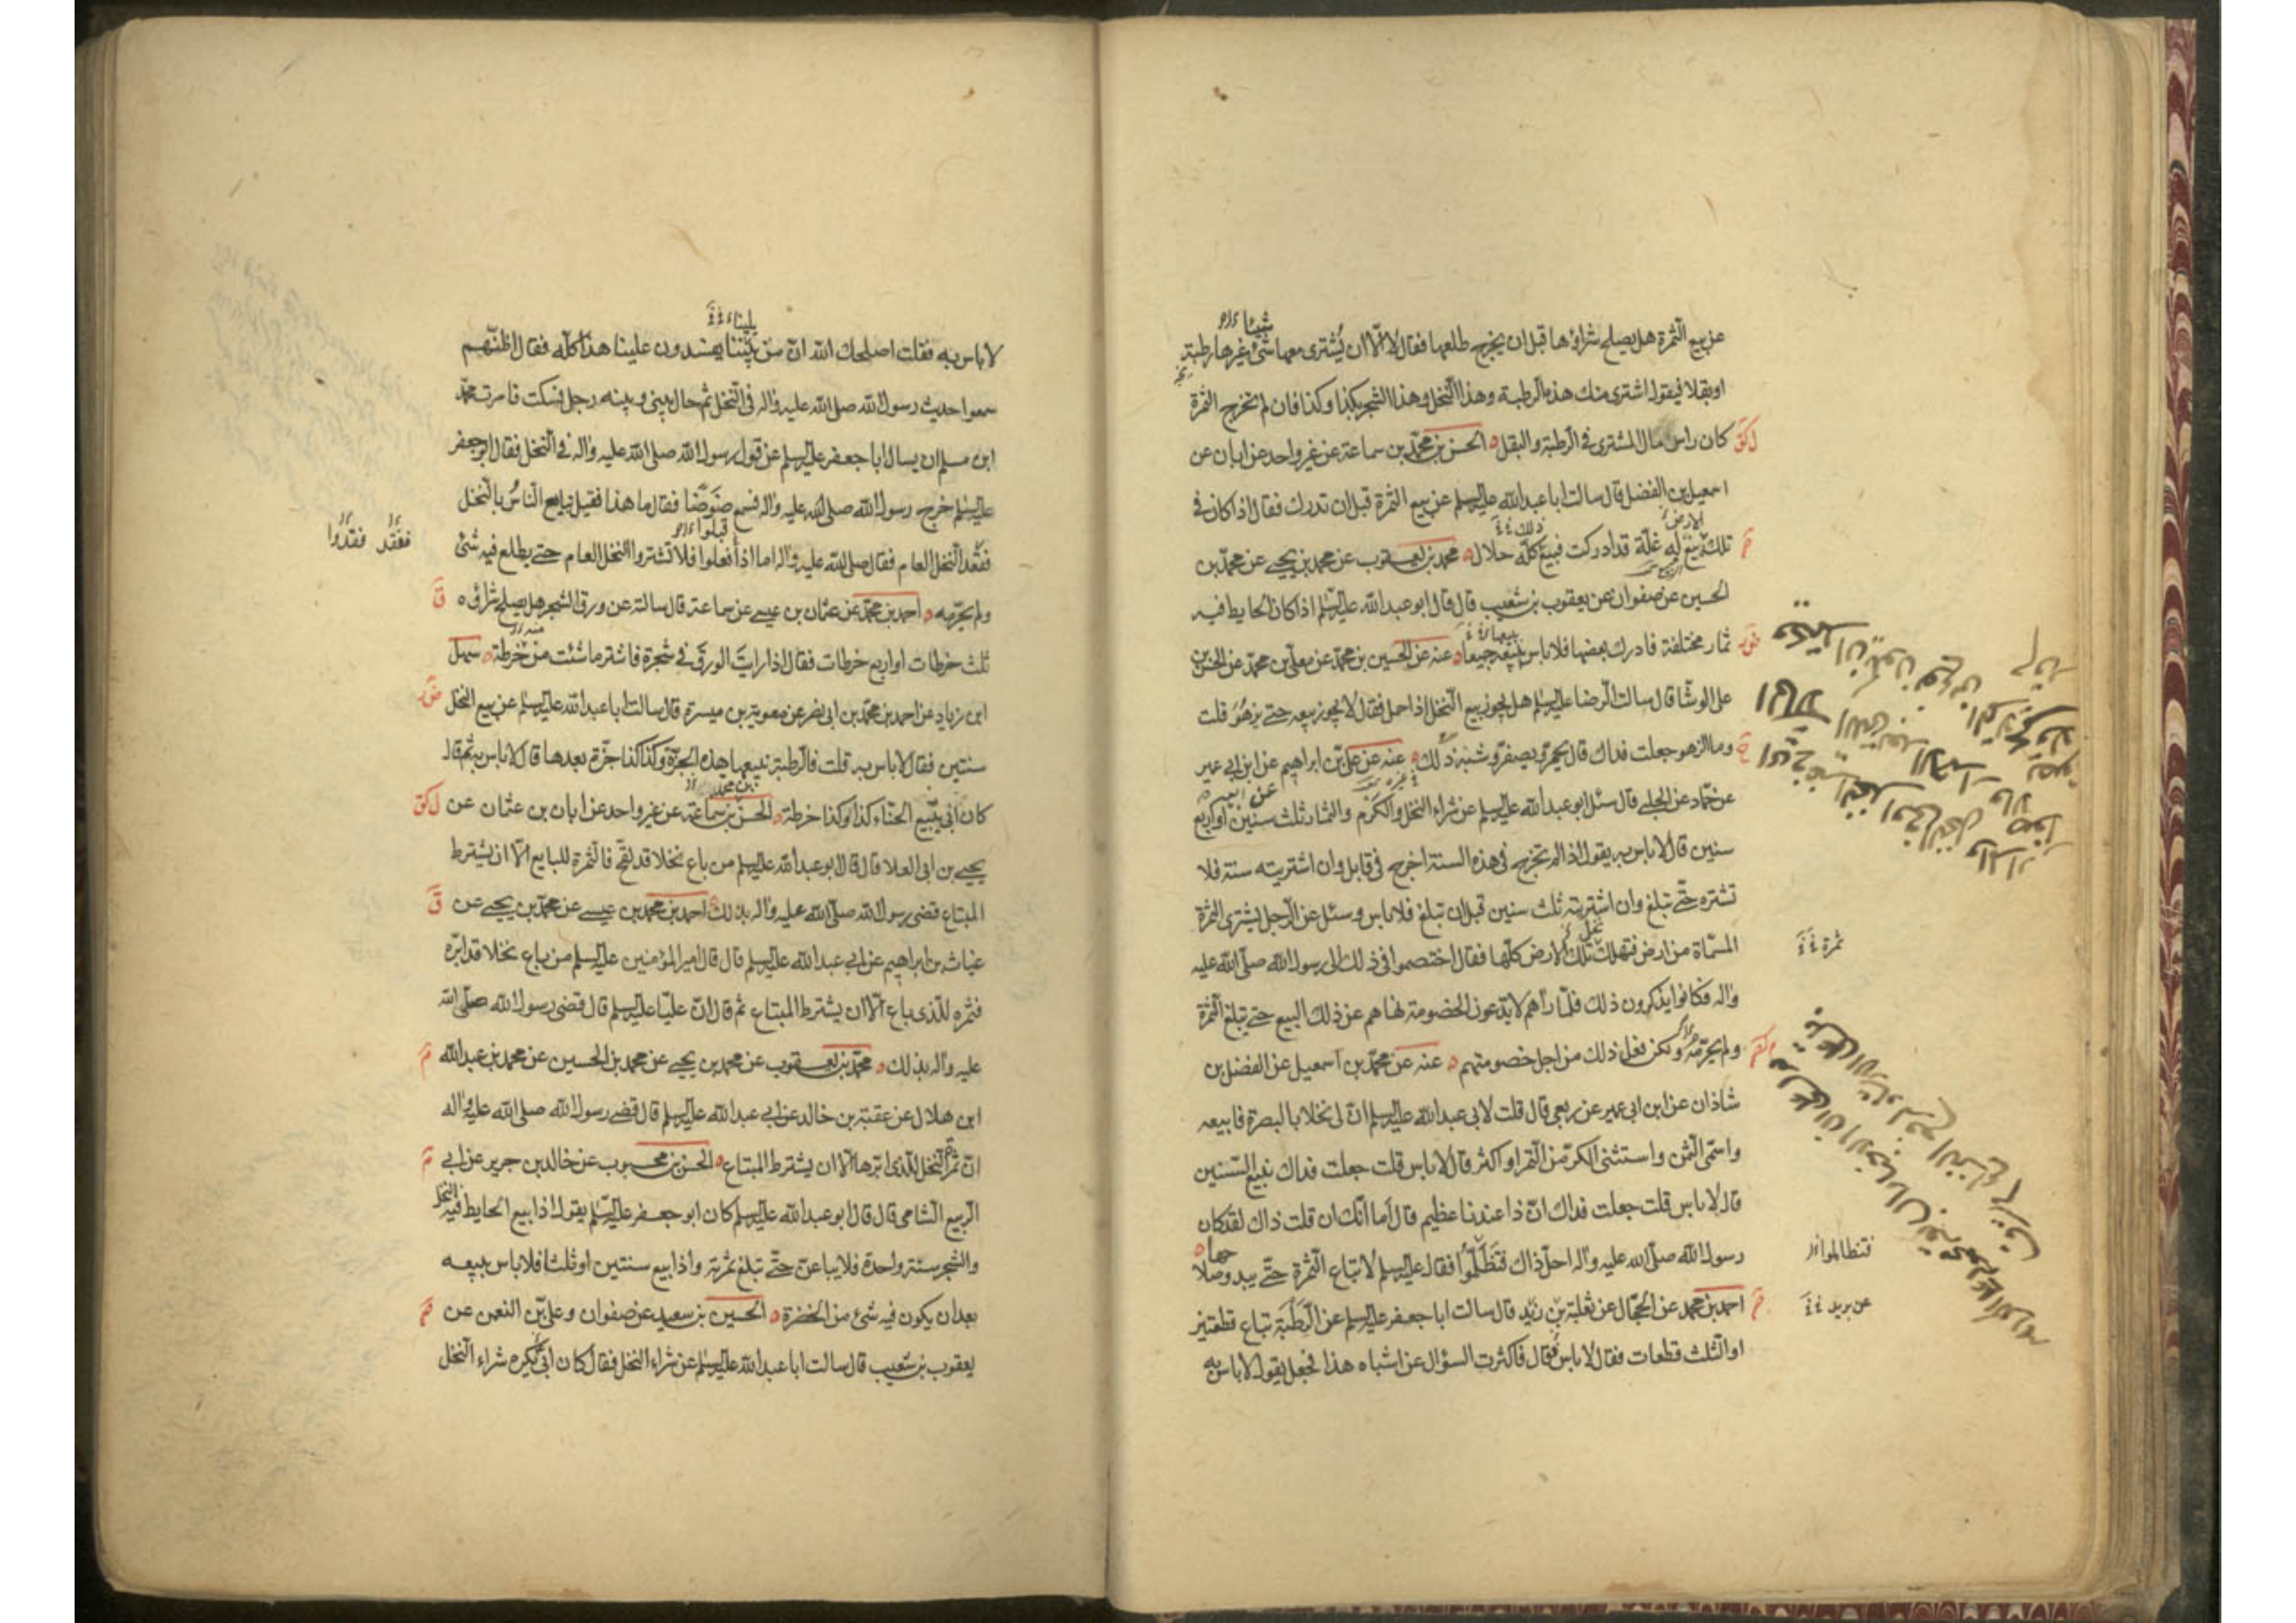 عن بيع الثمرة هل يصلح شراؤها قبل ان يخرج طلعها فقال لا الّا ان يُشترى معها شئ غيرها رطبة
او بقلا فيقول اشترى منك هذه الرطبة وهذا النخل وهذا الشجر بكذا وكذا فان لم تخرج الثمرة
كان راس مال المشترى في الرطبة والبقل الحسن بن محمّد بن سماعة عن غير واحد عن ابان عن
اسمعيل بن الفضل قال سالت ابا عبد الله عليه السلم عن بيع الثمرة قبل ان تدرك فقال اذا كان في
تلك بيع له غلّة قد ادركت فبيع كلّه حلال محمد بن يعقوب عن محمد بن يحيى عن محمّد بن
الحسين عن صفوان عن يعقوب بن شعيب قال قال ابو عبد الله عليه السلم اذا كان الحايط فيه
ثمار مختلفة فادرك بعضها فلا باس ببيعه جميعا عنه عن الحسين بن محمّد عن معلّى بن محمّد عن الحسن بن
على الوشّا قال سالت الرضا عليه السلم هل يجوز بيع النخل اذا حمل فقال لا يجوز بيعه حتى يزهو قلت
وما الزهو جعلت فداك قال يحمرّ ويصفرّ وشبه ذلك عنه عن علىّ بن ابراهيم عن ابن ابى عمير
عن حمّاد عن الحلبى قال سئل ابو عبد الله عليه السلم عن شراء النخل والكرم والثمار ثلث سنين او اربع
سنين قال لا باس به يقول اذا لم تخرج في هذه السنة اخرج في قابل وان اشتريته سنة فلا
تشتره حتّى تبلغ وان اشتريته ثلث سنين قبل ان تبلغ فلا باس وسئل عن الرجل يشترى الثمرة
المسمّاة من ارض فتهلك تلك الارض كلّها فقال اختصموا في ذلك الى رسول الله صلّى الله عليه
واله فكانوا يذكرون ذلك فلمّا رآهم لا يدَعون الخصومة نهاهم عن ذلك البيع حتى تبلغ الثمرة
ولم يحرّمه ولكن فعل ذلك من اجل خصومتهم عنه عن محمّد بن اسمعيل عن الفضل بن
شاذان عن ابن ابى عمير عن ربعى قال قلت لابى عبد الله عليه السلم انّ لى نخلا بالبصرة فابيعه
واسمّى الثمن واستثنى الكرّ من التمر او اكثر قال لا باس قلت جعلت فداك نبيع السنتين
قال لا باس قلت جعلت فداك انّ ذا عندنا عظيم قال اما انّك ان قلت ذاك لقد كان
رسول الله صلّى الله عليه واله احلّ ذاك فتظلّموا فقال عليه السلم لا تباع الثمرة حتّى يبدو صلاحها
احمد بن محمد عن الحجّال عن ثعلبة بن زيد قال سالت ابا جعفر عليه السلم عن الرطبة تباع قطعتين
او الثلث قطعات فقال لا باس فقال فاكثرت السؤال عن اشباه هذا فجعل يقول لا باس به
ثمرة
فتظالموا
عن بريد
لا باس به فقلت اصلحك الله انّ من بيننا يفسدون علينا هذا كلّه فقال اظنّهم
سمعوا حديث رسول الله صلى الله عليه واله في النخل ثم حال بينى وبينه رجل فسكت فامرت محمّد
ابن مسلم ان يسال ابا جعفر عليه السلم عن قول رسول الله صلى الله عليه واله في النخل فقال ابو جعفر
عليه السلم خرج رسول الله صلى الله عليه واله فسمع ضوضا فقال ما هذا فقيل تبايع الناسُ بالنخل
فقعد النخل العام فقال صلى الله عليه واله اما اذا فعلوا فلا تشتروا النخل العام حتى يطلع فيه شئ
ولم يحرّمه احمد بن محمّد عن عثمان بن عيسى عن سماعة قال سالته عن ورق الشجر هل يصلح شراؤه
ثلث خرطات او اربع خرطات فقال اذا رايت الورق في شجرة فاشتر ما شئت من خرطة سهل
ابن زياد عن احمد بن محمّد بن ابى نصر عن معوية بن ميسرة قال سالت ابا عبد الله عليه السلم عن بيع النخل
سنتين فقال لا باس به قلت فالرطبة نبيعها هذه الجزّة وكذا كذا جزّة بعدها قال لا باس به ثم قال
كان ابى يبيع الحنّاء كذا وكذا خرطة الحسن بن سماعة عن غير واحد عن ابان بن عثمان عن
يحيى بن ابى العلا قال قال ابو عبد الله عليه السلم من باع نخلا قد لقّح فالثمرة للبايع الّا ان يشترط
المبتاع قضى رسول الله صلّى الله عليه واله بذلك احمد بن محمد بن عيسى عن محمّد بن يحيى عن
غياث بن ابراهيم عن ابى عبد الله عليه السلم قال قال امير المؤمنين عليه السلم من باع نخلا قد ابّره
فثمره للّذى باع الّا ان يشترط المبتاع ثم قال انّ عليّا عليه السلم قال قضى رسول الله صلّى الله
عليه واله بذلك محمّد بن يعقوب عن محمد بن يحيى عن محمد بن الحسين عن محمد بن عبد الله
ابن هلال عن عقبة بن خالد عن ابى عبد الله عليه السلم قال قضى رسول الله صلى الله عليه واله
انّ ثمر النخل للّذى ابّرها الّا ان يشترط المبتاع الحسن بن محبوب عن خالد بن جرير عن ابى
الربيع الشامى قال قال ابو عبد الله عليه السلم كان ابو جعفر عليه السلم يقول اذا بيع الحايط فيه النخل
والشجر سنة واحدة فلا يباعنّ حتّى تبلغ ثمرته واذا بيع سنتين او ثلثا فلا باس ببيعه
بعد ان يكون فيه شئ من الخضرة الحسين بن سعيد عن صفوان وعلىّ بن النعمن عن
يعقوب بن شعيب قال سالت ابا عبد الله عليه السلم عن شراء النخل فقال كان ابى يكره شراء النخل
ففقد فقدوا